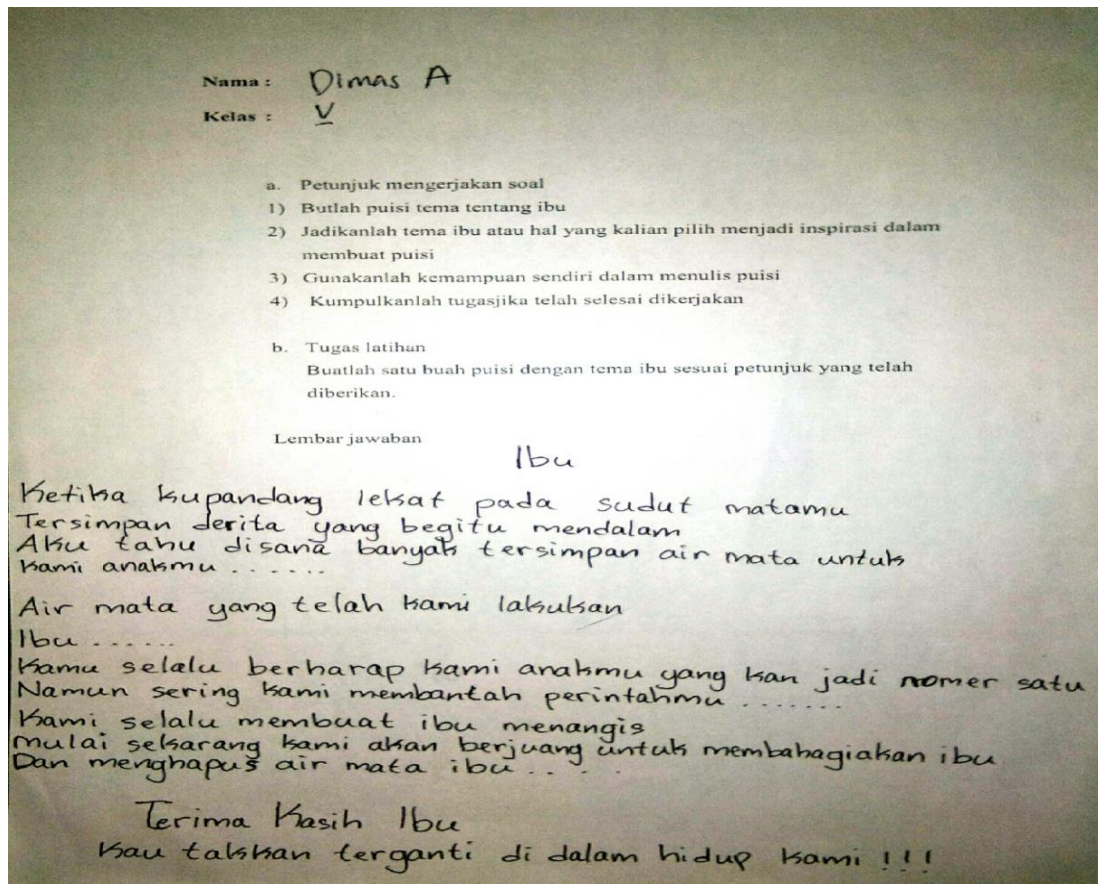 Nama : Dimas A
Kelas : V
a. Petunjuk mengerjakan soal
1) Butlah puisi tema tentang ibu
2) Jadikanlah tema ibu atau hal yang kalian pilih menjadi inspirasi dalam
membuat puisi
3) Gunakanlah kemampuan sendiri dalam menulis puisi
4) Kumpulkanlah tugasjika telah selesai dikerjakan
b. Tugas latihan
Buatlah satu buah puisi dengan tema ibu sesuai petunjuk yang telah
diberikan.
Lembar jawaban
Ibu
Ketika kupandang lekat pada sudut matamu
Tersimpan derita yang begitu mendalam
Aku tahu disana banyak tersimpan air mata untuk
kami anakmu .......
Air mata yang telah kami lakukan
Ibu ......
Kamu selalu berharap kami anakmu yang kan jadi nomer satu
Namun sering kami membantah perintahmu .......
Kami selalu membuat ibu menangis
mulai sekarang kami akan berjuang untuk membahagiakan ibu
Dan menghapus air mata ibu ....
Terima Kasih Ibu
Kau takkan terganti di dalam hidup kami !!!